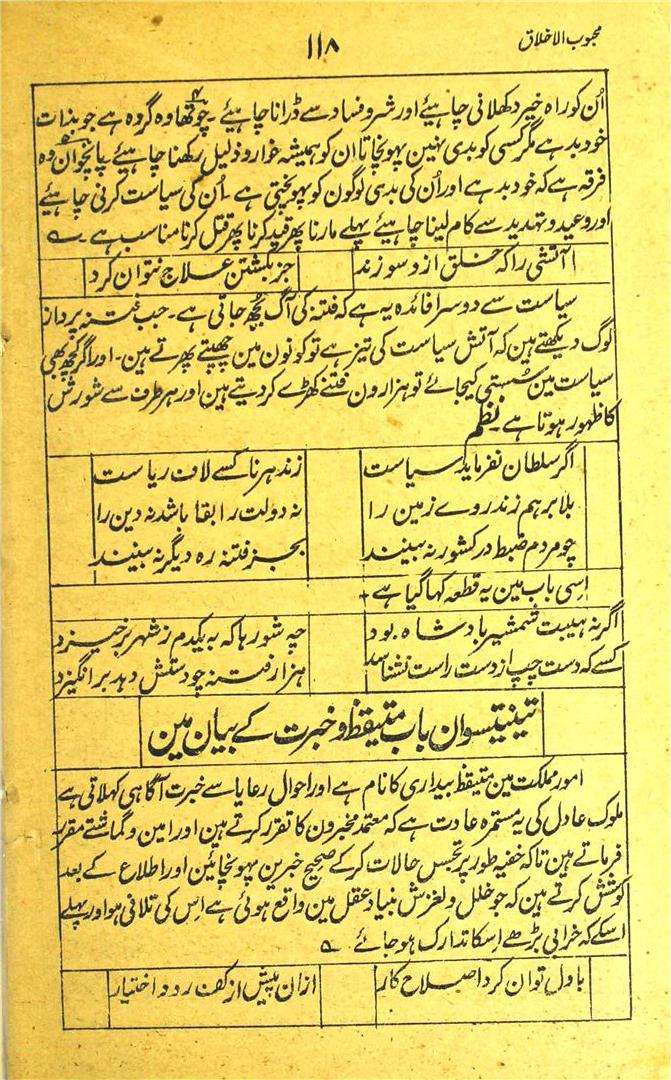 محبوب الاخلاق
۱۱۸
اُن کو راہ خیر دکھلانی چاہیے اور شر و فساد سے ڈرانا چاہیے ۔ چوتھا وہ گروہ ہے جو بذات
خود بد ہے مگر کسی کو بدی نہین پہونچاتا ان کو ہمیشہ خوار و ذلیل رکھنا چاہیے پانچوان وہ
فرقہ ہے کہ خود بد ہے اور اُن کی بدی لوگون کو پہونچتی ہے ۔ اُن کی سیاست کرنی چاہیے
اور وعید و تہدید سے کام لینا چاہیے پہلے مارنا پھر قید کرنا پھر قتل کرنا مناسب ہے ۔ ؎
آتشی را کہ خلق ازو سوزند جز بکشتن علاج نتوان کرد
سیاست سے دوسرا فائدہ یہ ہے کہ فتنہ کی آگ بجھ جاتی ہے ۔ جب فتنہ پرداز
لوگ دیکھتے ہین کہ آتش سیاست کی تیز ہے تو کونون مین چھپتے پھرتے ہین ۔ اور اگر کچھ بھی
سیاست مین سُستی کیجائے تو ہزارون فتنے کھڑے کر دیتے ہین اور ہر طرف سے شورش
کا ظہور ہوتا ہے ۔ نظم
اگر سلطان نفرماید سیاست زند ہر ناکسے لاف ریاست
بلا برہم زند روے زمین را نہ دولت را بقا باشد نہ دین را
چو مردم ضبط در کشور نہ بینند بجز فتنہ رہ دیگر نہ بینند
اسی باب مین یہ قطعہ کہا گیا ہے
اگر نہ ہیبت شمشیر بادشاہ بود چہ شورہا کہ بہ یکدم ز شہر برخیزد
کسے کہ دست چپ از دست راست نشناسد ہزار فتنہ چو دستش دہد برانگیزد
تینتیسوان باب متیقظ و خبرت کے بیان مین
امور مملکت مین متیقظ بیداری کا نام ہے اور احوال رعایا سے خبرت آگاہی کہلاتی ہے
ملوک عادل کی یہ مستمرہ عادت ہے کہ معتمد مخبرون کا تقرر کرتے ہین اور امین و گماشتے مقرر
فرماتے ہین تاکہ خفیہ طور پر تجسس حالات کرکے صحیح خبرین پہونچائین اور اطلاع کے بعد
کوشش کرتے ہین کہ جو خلل و لغزش بنیاد عقل مین واقع ہوئی ہے اس کی تلافی ہو اور پہلے
اسکے کہ خرابی بڑھے اسکا تدارک ہو جائے ؎
باول توان کرد اصلاح کار ازان پیش از کف رود اختیار